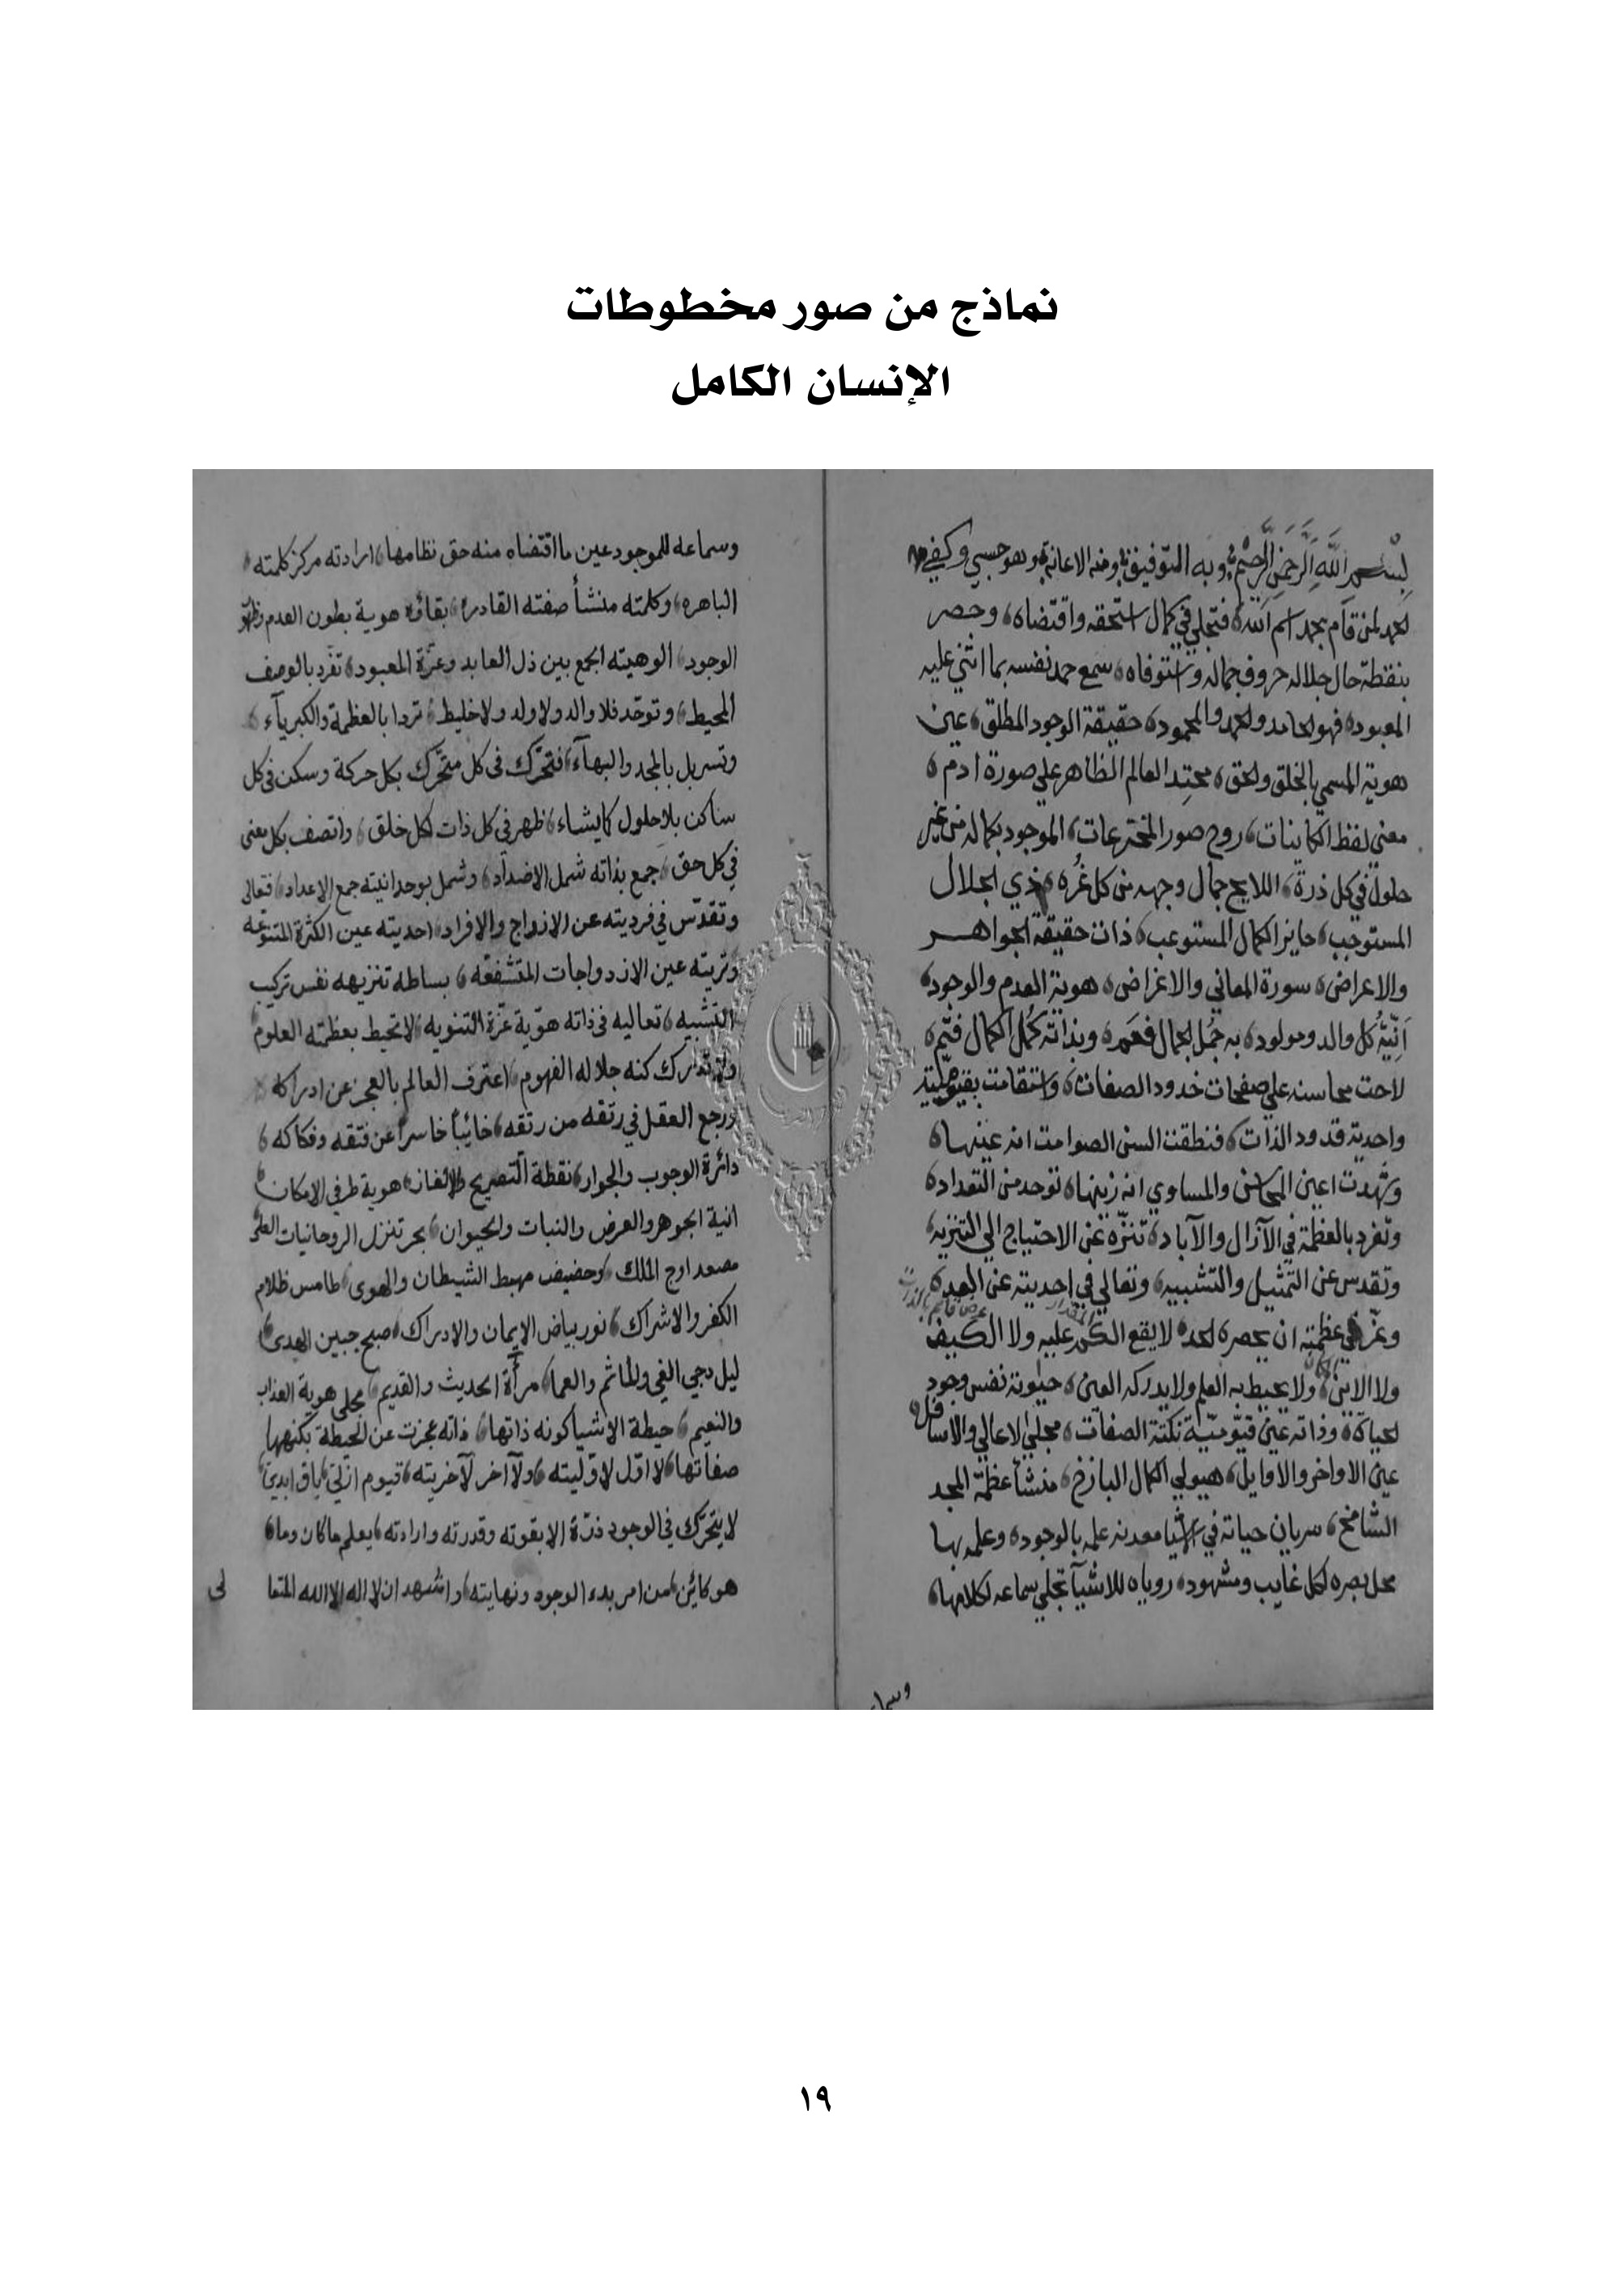 نماذج من صور مخطوطات
الإنسان الكامل
بسم الله الرحمن الرحيم وبه التوفيق ومنه الاعانة وهو حسبي وكفى
الحمد لمن قام بحمد اسم الله فتجلى في كمال استحقه واقتضاه وحصر
بنقطة حال جلاله حروف جماله واستوفاه سمع حمد نفسه بما اثني عليه
المعبود فهو الحامد والحمد والمحمود حقيقة الوجود المطلق عين
هوية المسمي بالخلق والحق محتد العالم الظاهر علي صورة ادم
معني لفظ الكاينات روح صور المخترعات الموجود بكماله من غير
حلول في كل ذرة اللايح جمال وجهه من كل غره ذي الجلال
المستوجب حايز الكمال المستوعب ذات حقيقة الجواهر
والاعراض سورة المعاني والاغراض هوية العدم والوجود
انية كل والد ومولود به جمل الجمال فعمر وبذاته كمل الكمال فتم
لاحت محاسنه علي صفحات خدود الصفات واستقامت بقيومية
واحدية قدود الذات فنطقت السن الصوامت انه عينها
وشهدت اعين المحاسن والمساوي انه زينها توحد من التعداد
وتفرد بالعظمة في الآزال والآباد تنزه عن الاحتياج الي التنزيه
وتقدس عن التمثيل والتشبيه وتعالي في احديته عن العد
وعز في عظمته ان يحصره الحد لا يقع الكم عليه ولا الكيف
ولا الاين ولا يحيط به العلم ولا يدركه العين حيوته نفس وجود
الحياة وذاته عين قيومية نكتة الصفات مجلي الاعالي والاسافل
عين الاواخر والاوايل هيولي الكمال الباذخ منشأ عظمة المجد
الشامخ سريان حياته في الاشيا معدنه علمه بالوجود وعلمه بها
محل بصره لكل غايب ومشهود روياه للاشيآ تجلي سماعه لكلامها
وسما
وسماعه للموجود عين ما اقتضاه منه حق نظامها ارادته مركز كلمته
الباهره وكلمته منشأ صفته القادره بقاؤه هوية بطون العدم وظهور
الوجود الوهيته الجمع بين ذل العابد وعزة المعبود تفرد بالوصف
المحيط وتوحد فلا والد ولا ولد ولا خليط تردا بالعظمة والكبريآء
وتسربل بالمجد والبهآء فتحرك في كل متحرك بكل حركة وسكن في كل
ساكن بلا حلول كما يشاء ظهر في كل ذات لكل خلق واتصف بكل معنى
في كل حق جمع بذاته شمل الاضداد وشمل بوحدانيته جمع الاعداد فتعالى
وتقدس في فرديته عن الازواج والافراد احديته عين الكثرة المتنوعه
وتريته عين الازدواجات المتشفعه بساطه تنزيهه نفس تركيب
التشبيه تعاليه في ذاته هوية عزة التنويه لا تحيط بعظمته العلوم
ولا تدرك كنه جلاله الفهوم اعترف العالم بالعجز عن ادراكه
ورجع العقل في رتقه من رتقه خائبا خاسرا عن فتقه وفكاكه
دائرة الوجوب والجواز نقطة التصريح والالغاز هوية طرفي الامكان
انية الجوهر والعرض والنبات والحيوان بحر تنزل الروحانيات العلى
مصعد اوج الملك وحضيض مهبط الشيطان والهوى طامس ظلام
الكفر والاشراك نور بياض الايمان والادراك صبح جبين الهدى
ليل دجي الغي والعما مرأة الحديث والقديم مجلى هوية العذاب
والنعيم حيطة الاشيا كونه ذاتها ذاته عجزت عن الحيطة بكنهها
صفاتها لا اول لاوليته ولا آخر لآخريته قيوم ازلي باق ابدي
لا يتحرك في الوجود ذرة الا بقوته وقدرته وارادته يعلم ما كان وما
هو كائن من امر بدء الوجود ونهايته واشهد ان لا اله الا الله المتعا
لى
١٩